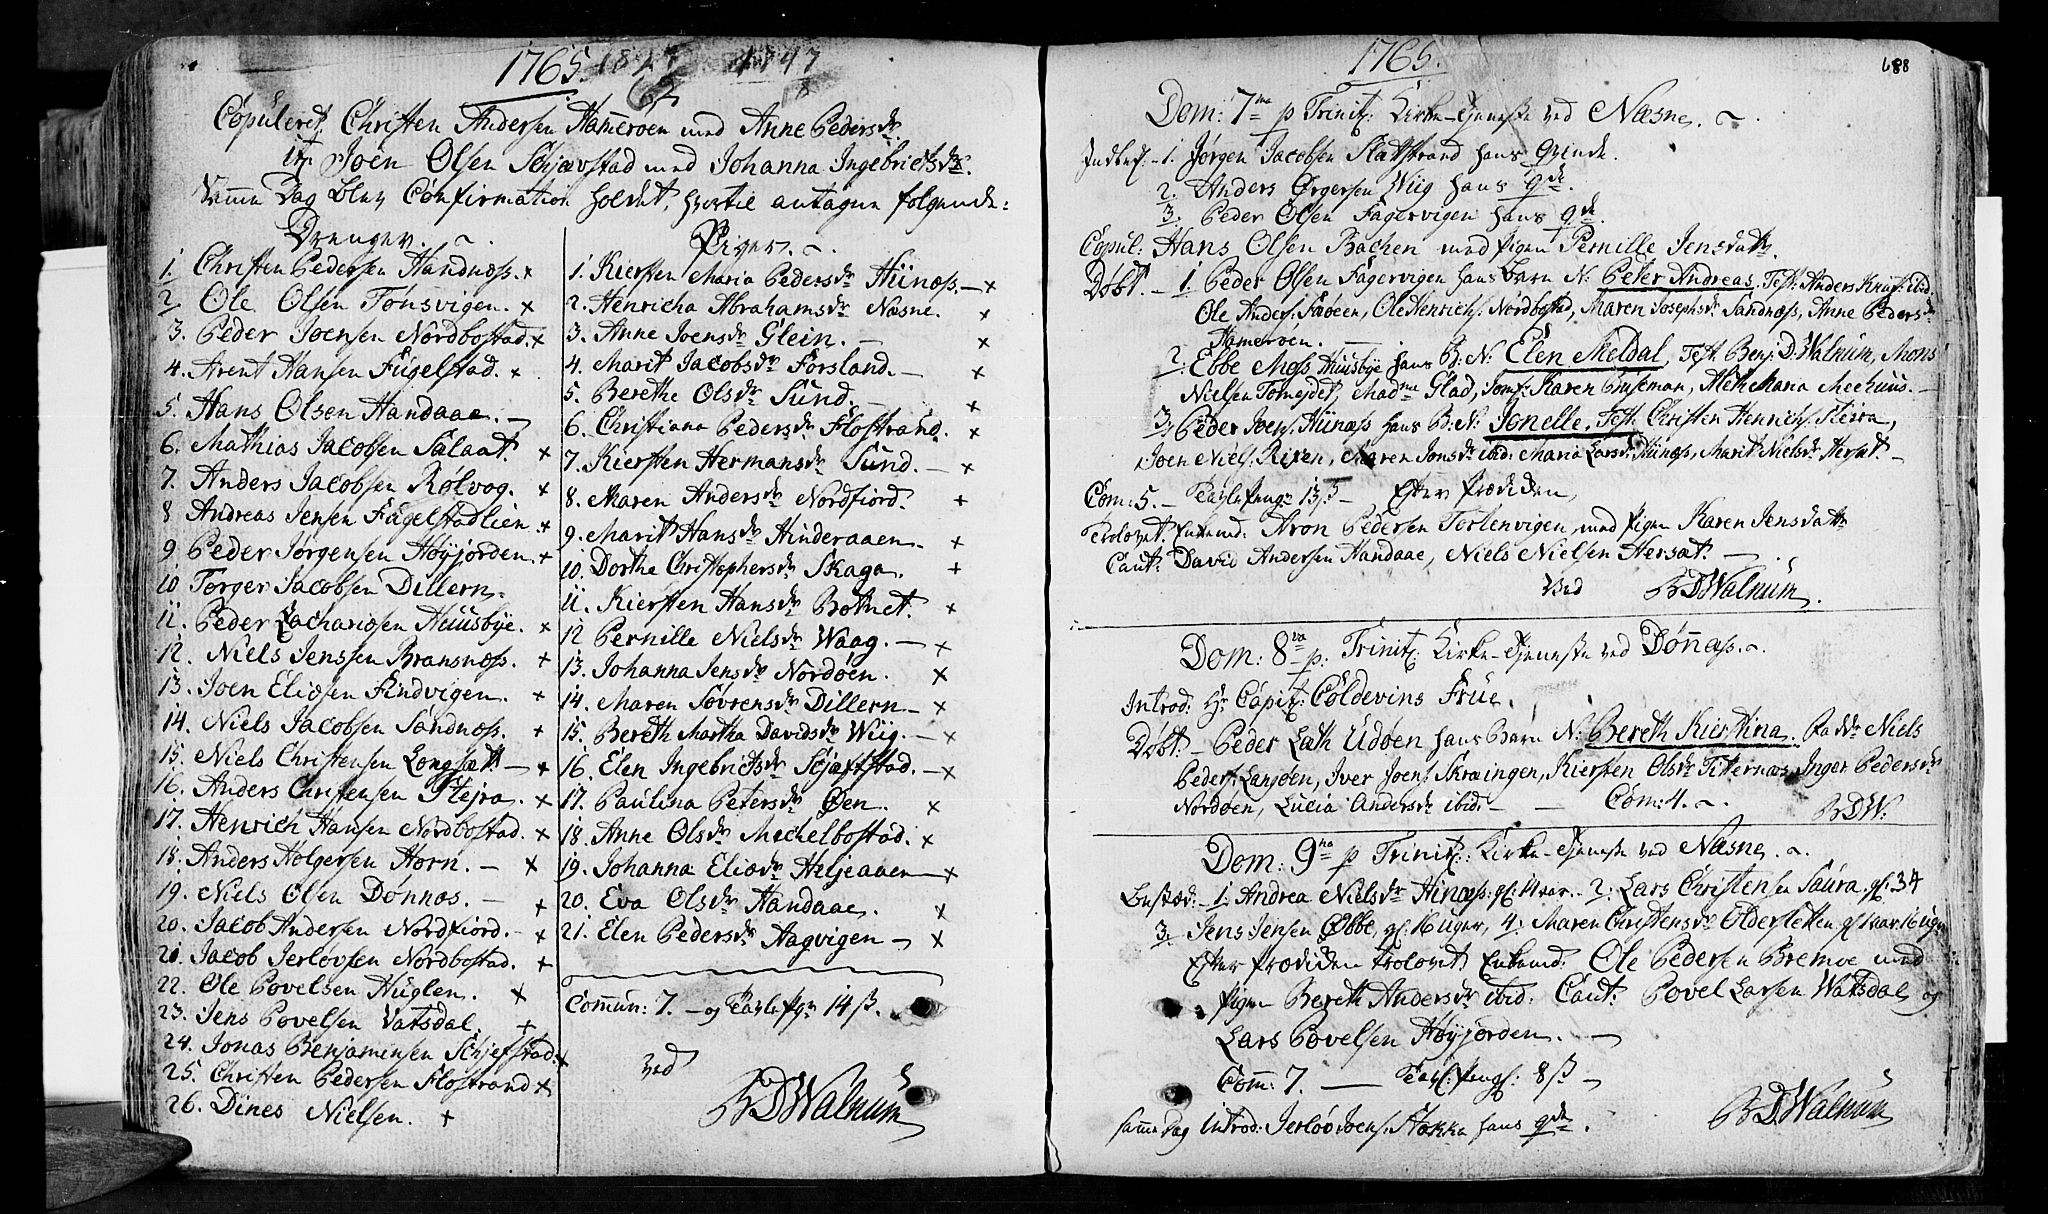 1765.
Copuleret, Christen Andersen Hameroen med Anne Pedersdr.
it: Joen Olsen Schjævstad med Johanna Ingebrictsdr.
Samme Dag blev Confirmation holdet, hvortil antagne folgende:
Drenger.
1. Christen Pedersen Handnæss. x
2. Ole Olsen Tonsvigen. x
3. Peder Joensen Nordbostad. x
4. Arent Hansen Fugelstad. x
5. Hans Olsen Handaae. -
6. Mathias Jacobsen Salaat. x
7. Anders Jacobsen Rølvog. x
8 Andreas Jensen Fugelstadlien x
9. Peder Jørgensen Høyjorden. x
10 Torger Jacobsen Dillern.
11. Peder Zachariøsen Huusbye. x
12. Niels Jenssen Bransnoss. x
13. Joen Eliøsen Findvigen. x
14. Niels Jacobsen Sandnoss. x
15. Niels Christensen Longsætt. x
16. Anders Christensen Stejra. x
17. Henrich Hansen Nordbostad. x
18. Anders Holgersen Horn. - x
19. Niels Olsen Dønnæs. - x
20. Jacob Andersen Nordfiord. - x
21. Jacob Jerlovsen Nordbostad. x
22. Ole Povelsen Huglen. x
23. Jens Povelsen Vatsdal. x
24. Jonas Benjaminsen Schjefstad. x
25. Christen Pedersen Flostrand x
26. Dines Nielsen. x
Piger.
1. Kiersten Maria Pedersdr Hiinæss. - x
2. Henricha Abrahamsdr Næsne. x
3. Anne Joensdr Glein. - x
4. Marit Jacobsdr Forsland. - x
5. Berethe Olsdr Sund. - x
6. Christiana Pedersdr Flostrand. x
7. Kiersten Hermansdr Sund. - x
8. Maren Andersdr Nordfiord. x
9. Marit Hansdr Hinderaaen. x
10. Dorthe Christophersdr Skaga. x
11. Kiersten Hansdr Botnet. x
12 Pernille Nielsdr Waag. - x
13. Johanna Jensdr Nordøen. x
14. Maren Sovrensdr Dillern - x
15. Bereth Martha Davidsdr Wiig. - x
16. Elen Ingebrictsdr Schjæfstad. - x
17. Paulina Petersdr Øen. x
18. Anne Olsdr Mechelbostad. x
19. Johanna Eliædr Heljeaaen x
20. Eva Olsdr Handaae. x
21. Elen Pedersdr Hagvigen - x
Com̄un: 7. - og Tavle pgr 14 ß.
ved
BDWalnum
1765.
688
Dom: 7ma p Trinit: Kirke-Tjeneste ved Næsne.
Indled: - 1. Jørgen Jacobsen Slatstrand hans Qvinde.
2. Anders Ørgersen Wiig hans Qde.
3. Peder Olsen Fagervigen hans Qde.
Copul: Hans Olsen Bachen med Pigen Pernille Jensdattr.
Døbt. - 1. Peder Olsen Fagervigen hans Barn N: Peter Andreas. Test: Anders Knuts: ibid.
Ole Anders: Ole Henrichs: Nordbostad, Maren Josephsdr Sandnæss, Anne Pedersdr
Hameroen.
2. Ebbe Moss Huusbye hans B: N: Elen Meldal, Test. Benj: D: Walnum, Mons
Nielsen madme Glad, Jomf: Karen Maria Meehuus. -
3, Peder Joens: Hiinæss hans B: N: Jonelle. Test. Christen Henrichs:
Joen Niels: Maren Jonsdr ibid: Maria Larsdr Hiinæss, Marit Nielsdr Hersæt. -
Com: 5. - Tavle Pengr 13 ß - Efter Prædiken,
Trolovet. Enkemd: Aron Pedersen Torlenvigen, med Pigen Karen Jensdattr
Caut: David Andersen Handaae, Niels Nielsen Hersæt.
Ved BDWalnum.
Dom: 8va p: Trinit: Kirke-Tjeneste ved Dønæss.
Introd: Hr Capit: Coldevins Frue.
Døbt. - Peder Zach Udøen hans Barn N: Bereth Kierstina. Faddr Niels
Peders: Iver Joens: Skræingen, Kiersten Olsdr Titternæs, Inger Pedersdr
Nordøen, Lucia Andersdr ibid. - Com: 4.
BDW:
Dom: 9na p Trinit: Kirke-Tjeneste ved Næsne.
Bestæd: - 1. Andrea Nielsdr Hinæss: gl. 2. Lars Christensen Saura. gl: 34
3. Jens Jensen Ebbe, gl. 16 uger, 4. Maren Christensdr Oldersletten
Efter Prædiken trolovet Enkemd: Ole Pedersen Bremoe med
Pigen Bereth Andersdr ibid: Caut: Povel Larsen Watsdal og
Lars Povelsen Høyjorden.
Com̄: 7. - Tavl: Peng: 8 ß -
BDWalnum
Samme Dag introd: Jerlov Joens: Hokka hans Qde.